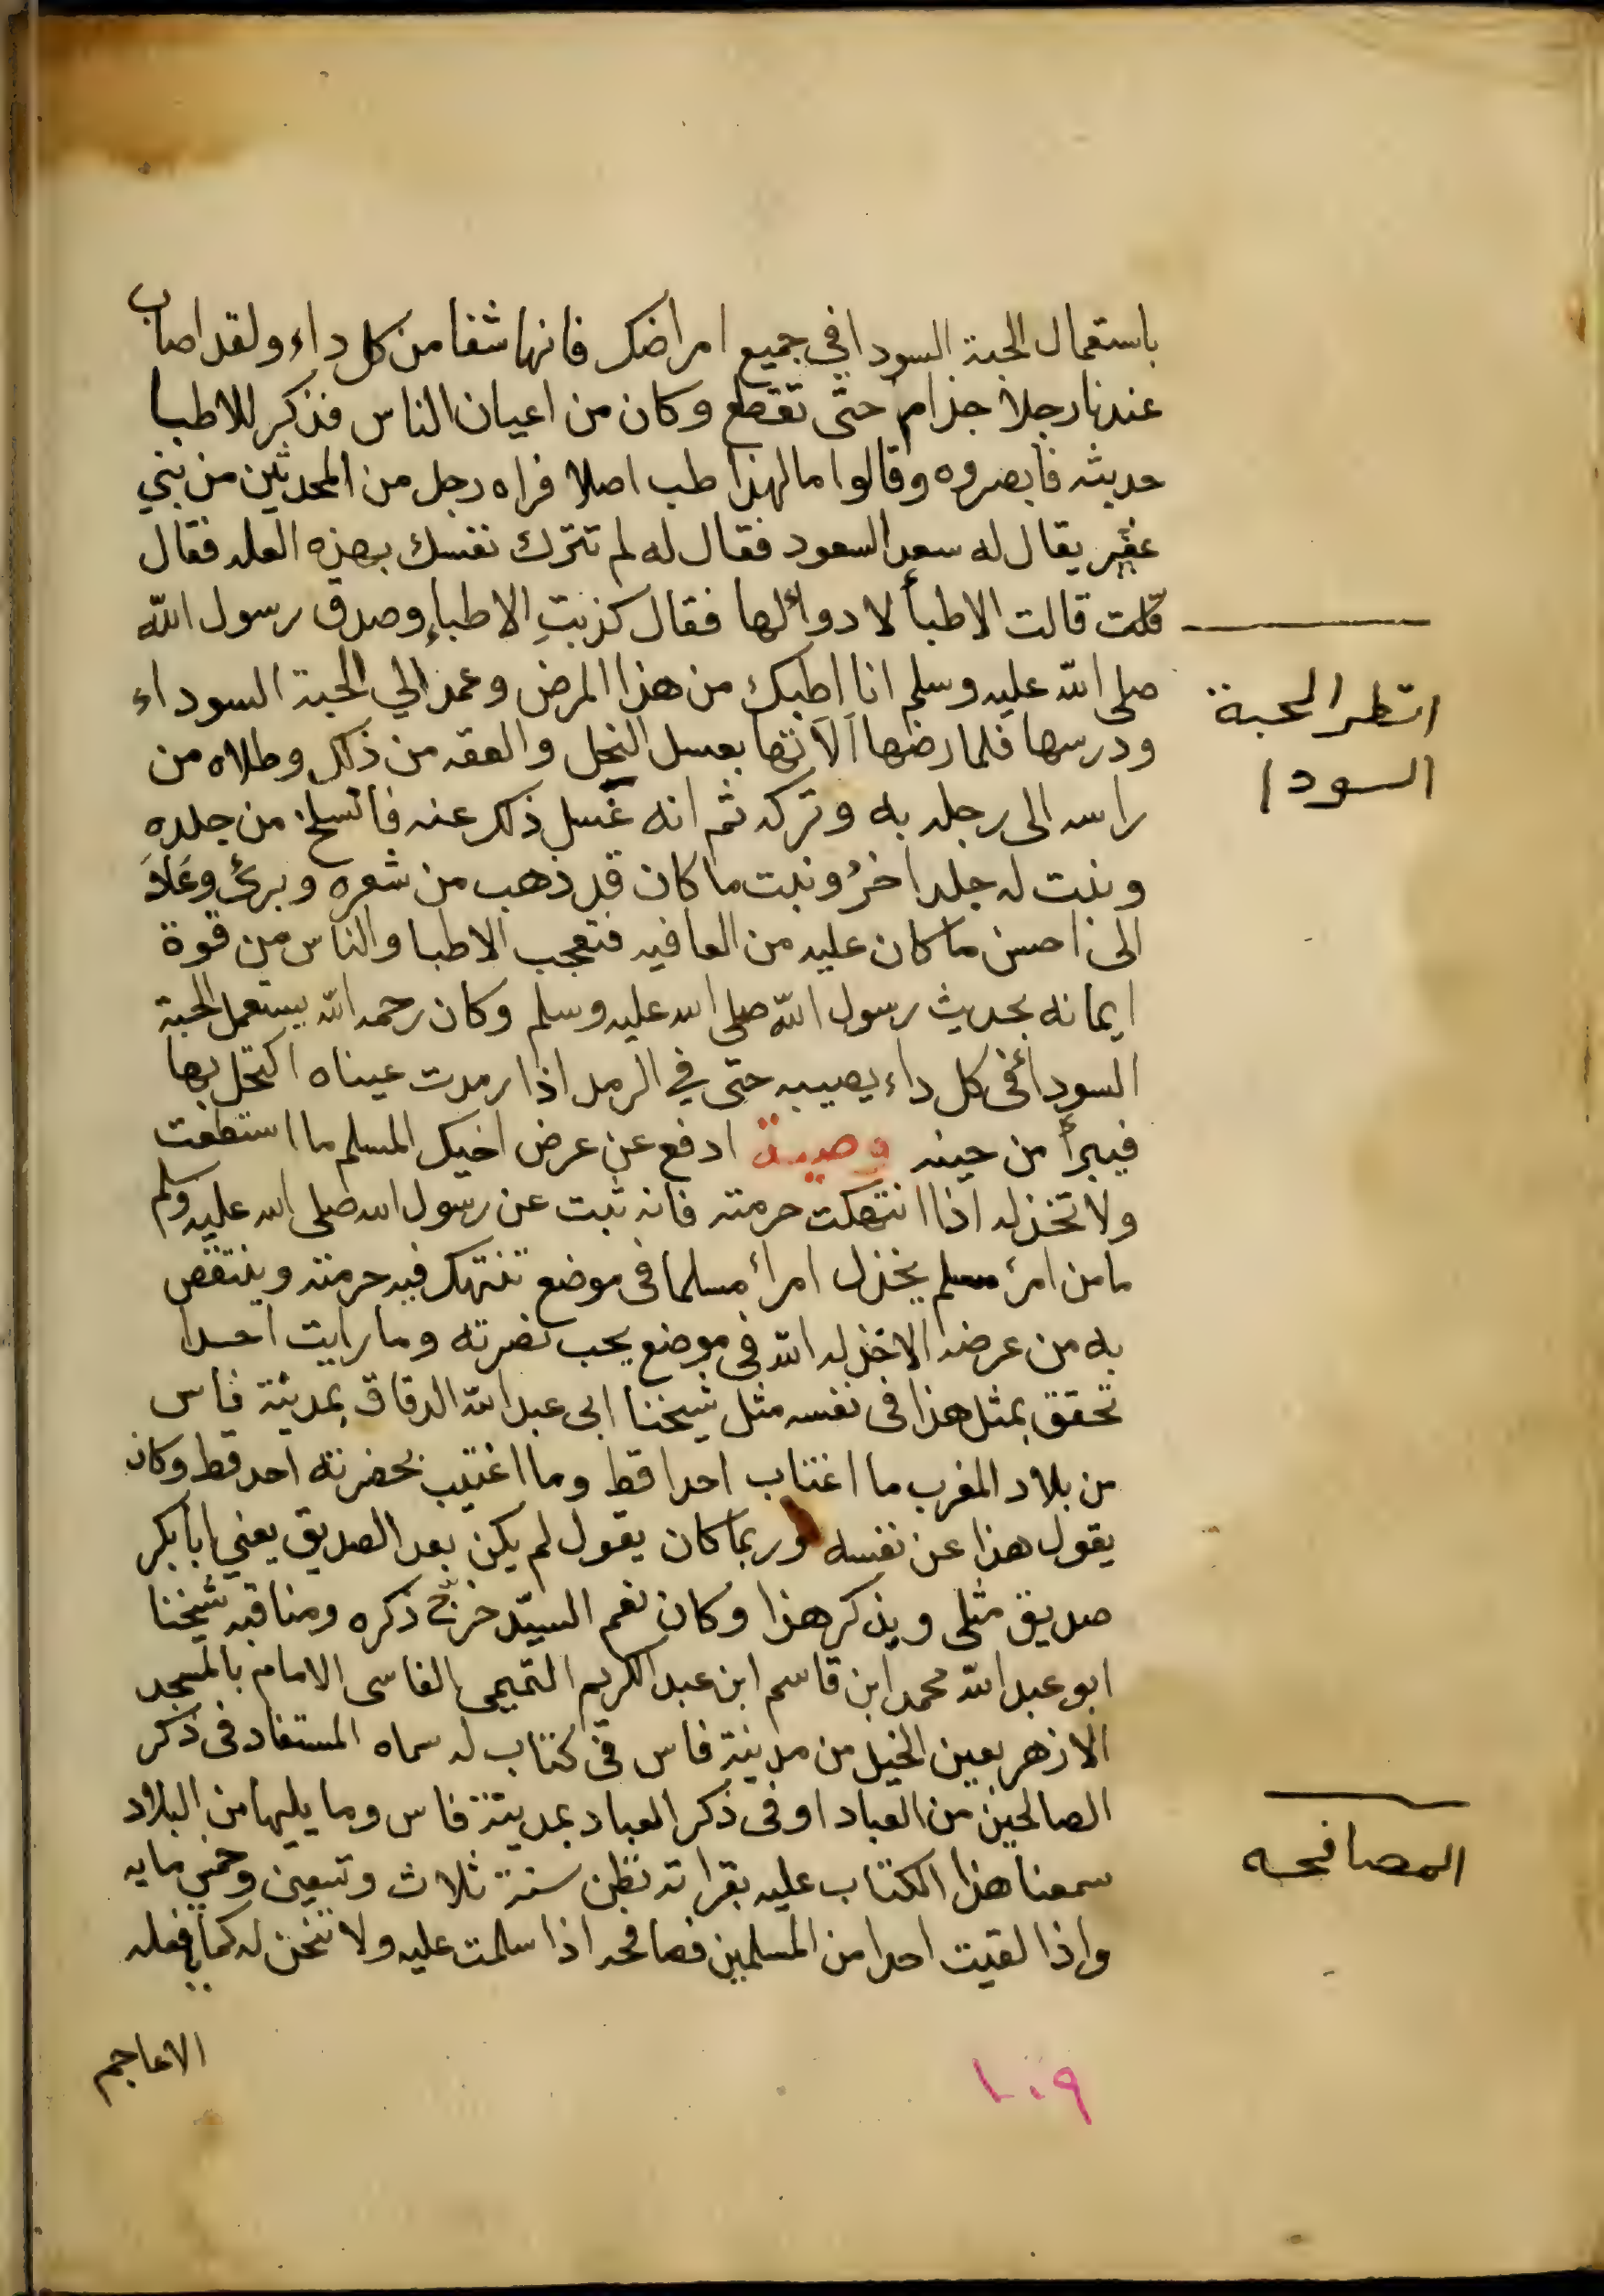 باستعمال الحبة السودا في جميع امراضك فانها شفا من كل داء ولقد اصاب
عندنا رجلا جذام حتى تقطع وكان من اعيان الناس فذكر للاطبا
حديثه فابصروه وقالوا ما لهذا طب اصلا فراه رجل من المحدثين من بني
عفير يقال له سعد السعود فقال له لم تترك نفسك بهذه العله فقال
قلت قالت الاطبأ لا دوأ لها فقال كذبتِ الاطباء وصدق رسول الله
صلى الله عليه وسلم انا اطبك من هذا المرض وعمد الي الحبة السوداء
انظر الحبة
السودا
ودرسها فلما رضها الاتها بعسل النحل والعقه من ذلك وطلاه من
راسه الى رجله به وتركه ثم انه غسل ذلك عنه فانسلخ من جلده
ونبت له جلد اخرُ ونبت ما كان قد ذهب من شعره وبرئ وعَلاَ
الى احسن ما كان عليه من العافيه فتعجب الاطبا والناس من قوة
ايمانه بحديث رسول الله صلى الله عليه وسلم وكان رحمه الله يستعمل الحبة
السودأ في كل داء يصيبه حتى في الرمد اذا رمدت عيناه اكتحل بها
فيبرأ من حينه وصية ادفع عن عرض اخيك المسلم ما استطعت
ولا تخذله اذا انتهكت حرمته فانه ثبت عن رسول الله صلى الله عليه وسلم
ما من امرئ مسلم يخذل امرأ مسلما في موضع تنتهك فيه حرمته وينتقص
به من عرضه الا خذله الله في موضع يحب نصرته وما رايت احدا
تحقق بمثل هذا في نفسه مثل شيخنا ابى عبد الله الدقاق بمدينة فاس
من بلاد المغرب ما اغتاب احدا قط وما اغتيب بحضرته احد قط وكان
يقول هذا عن نفسه وربما كان يقول لم يكن بعد الصديق يعني ابا بكر
صديق مثلى ويذكر هذا وكان نعم السيّد خرج ذكره ومناقبه شيخنا
ابو عبد الله محمد ابن قاسم ابن عبد الكريم التميمى الفاسى الامام بالمسجد
الازهر بعين الخيل من مدينة فاس في كتاب له سماه المستفاد فى ذكر
الصالحين من العباد او فى ذكر العباد بمدينة فاس وما يليها من البلاد
سمعنا هذا الكتاب عليه بقراته نظن سنة ثلاث وتسعين وخمس مايه
المصافحه
واذا لقيت احدا من المسلمين فصافحه اذا سلمت عليه ولا تنحن له كما يفعله
الاعاجم
١٠٩